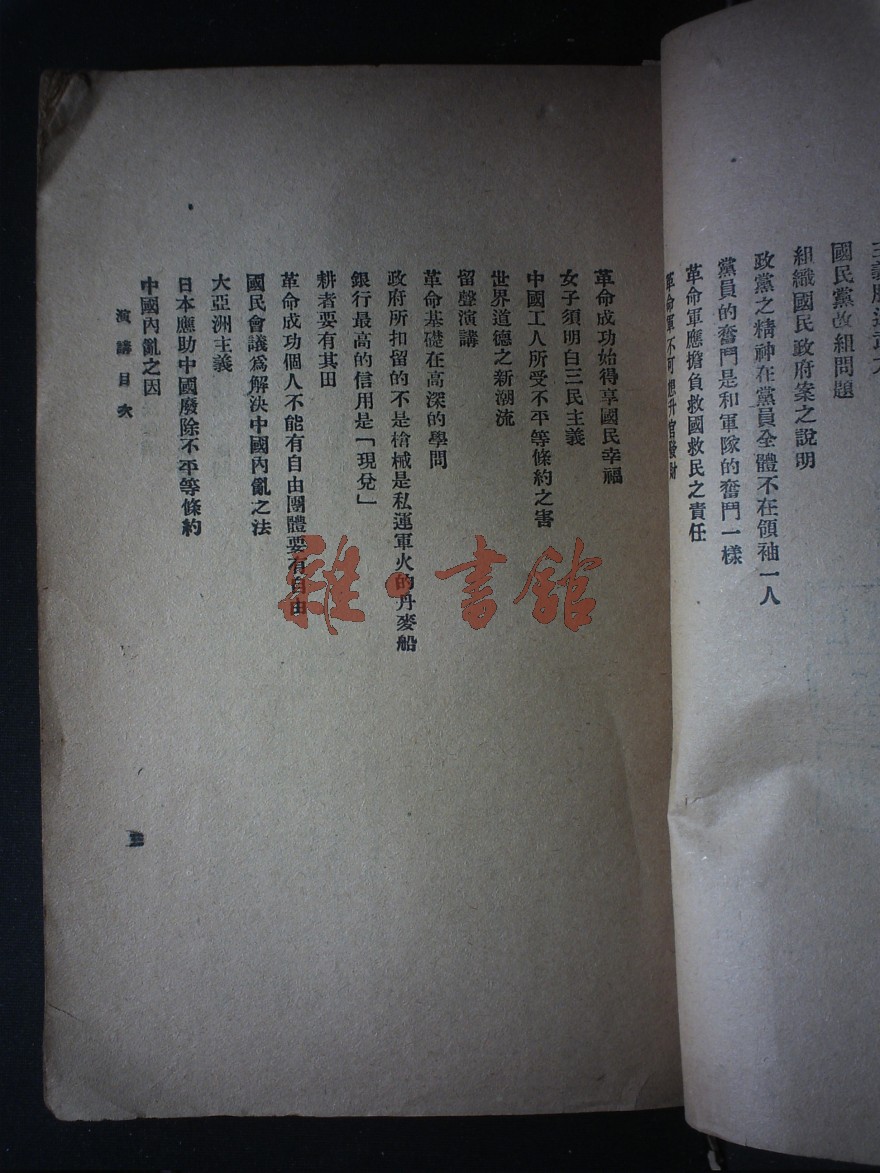 國民黨改組問題
組織國民政府案之說明
政黨之精神在黨員全體不在領袖一人
黨員的奮鬥是和軍隊的奮鬥一樣
革命軍應擔負救國救民之責任
革命軍不可想升官發財
革命成功始得享國民幸福
女子須明白三民主義
中國工人所受不平等條約之害
世界道德之新潮流
留聲演講
革命基礎在高深的學問
政府所扣留的不是槍械是私運軍火的丹麥船
銀行最高的信用是「現兌」
耕者要有其田
革命成功個人不能有自由團體要有自由
國民會議爲解決中國內亂之法
大亞洲主義
日本應助中國廢除不平等條約
中國內亂之因
演講目次
三
雜·書館